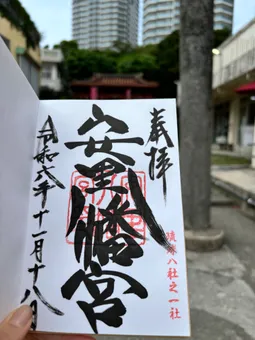 奉拝
安里八幡宮
琉球八社之一社
令和六年十一月十八日